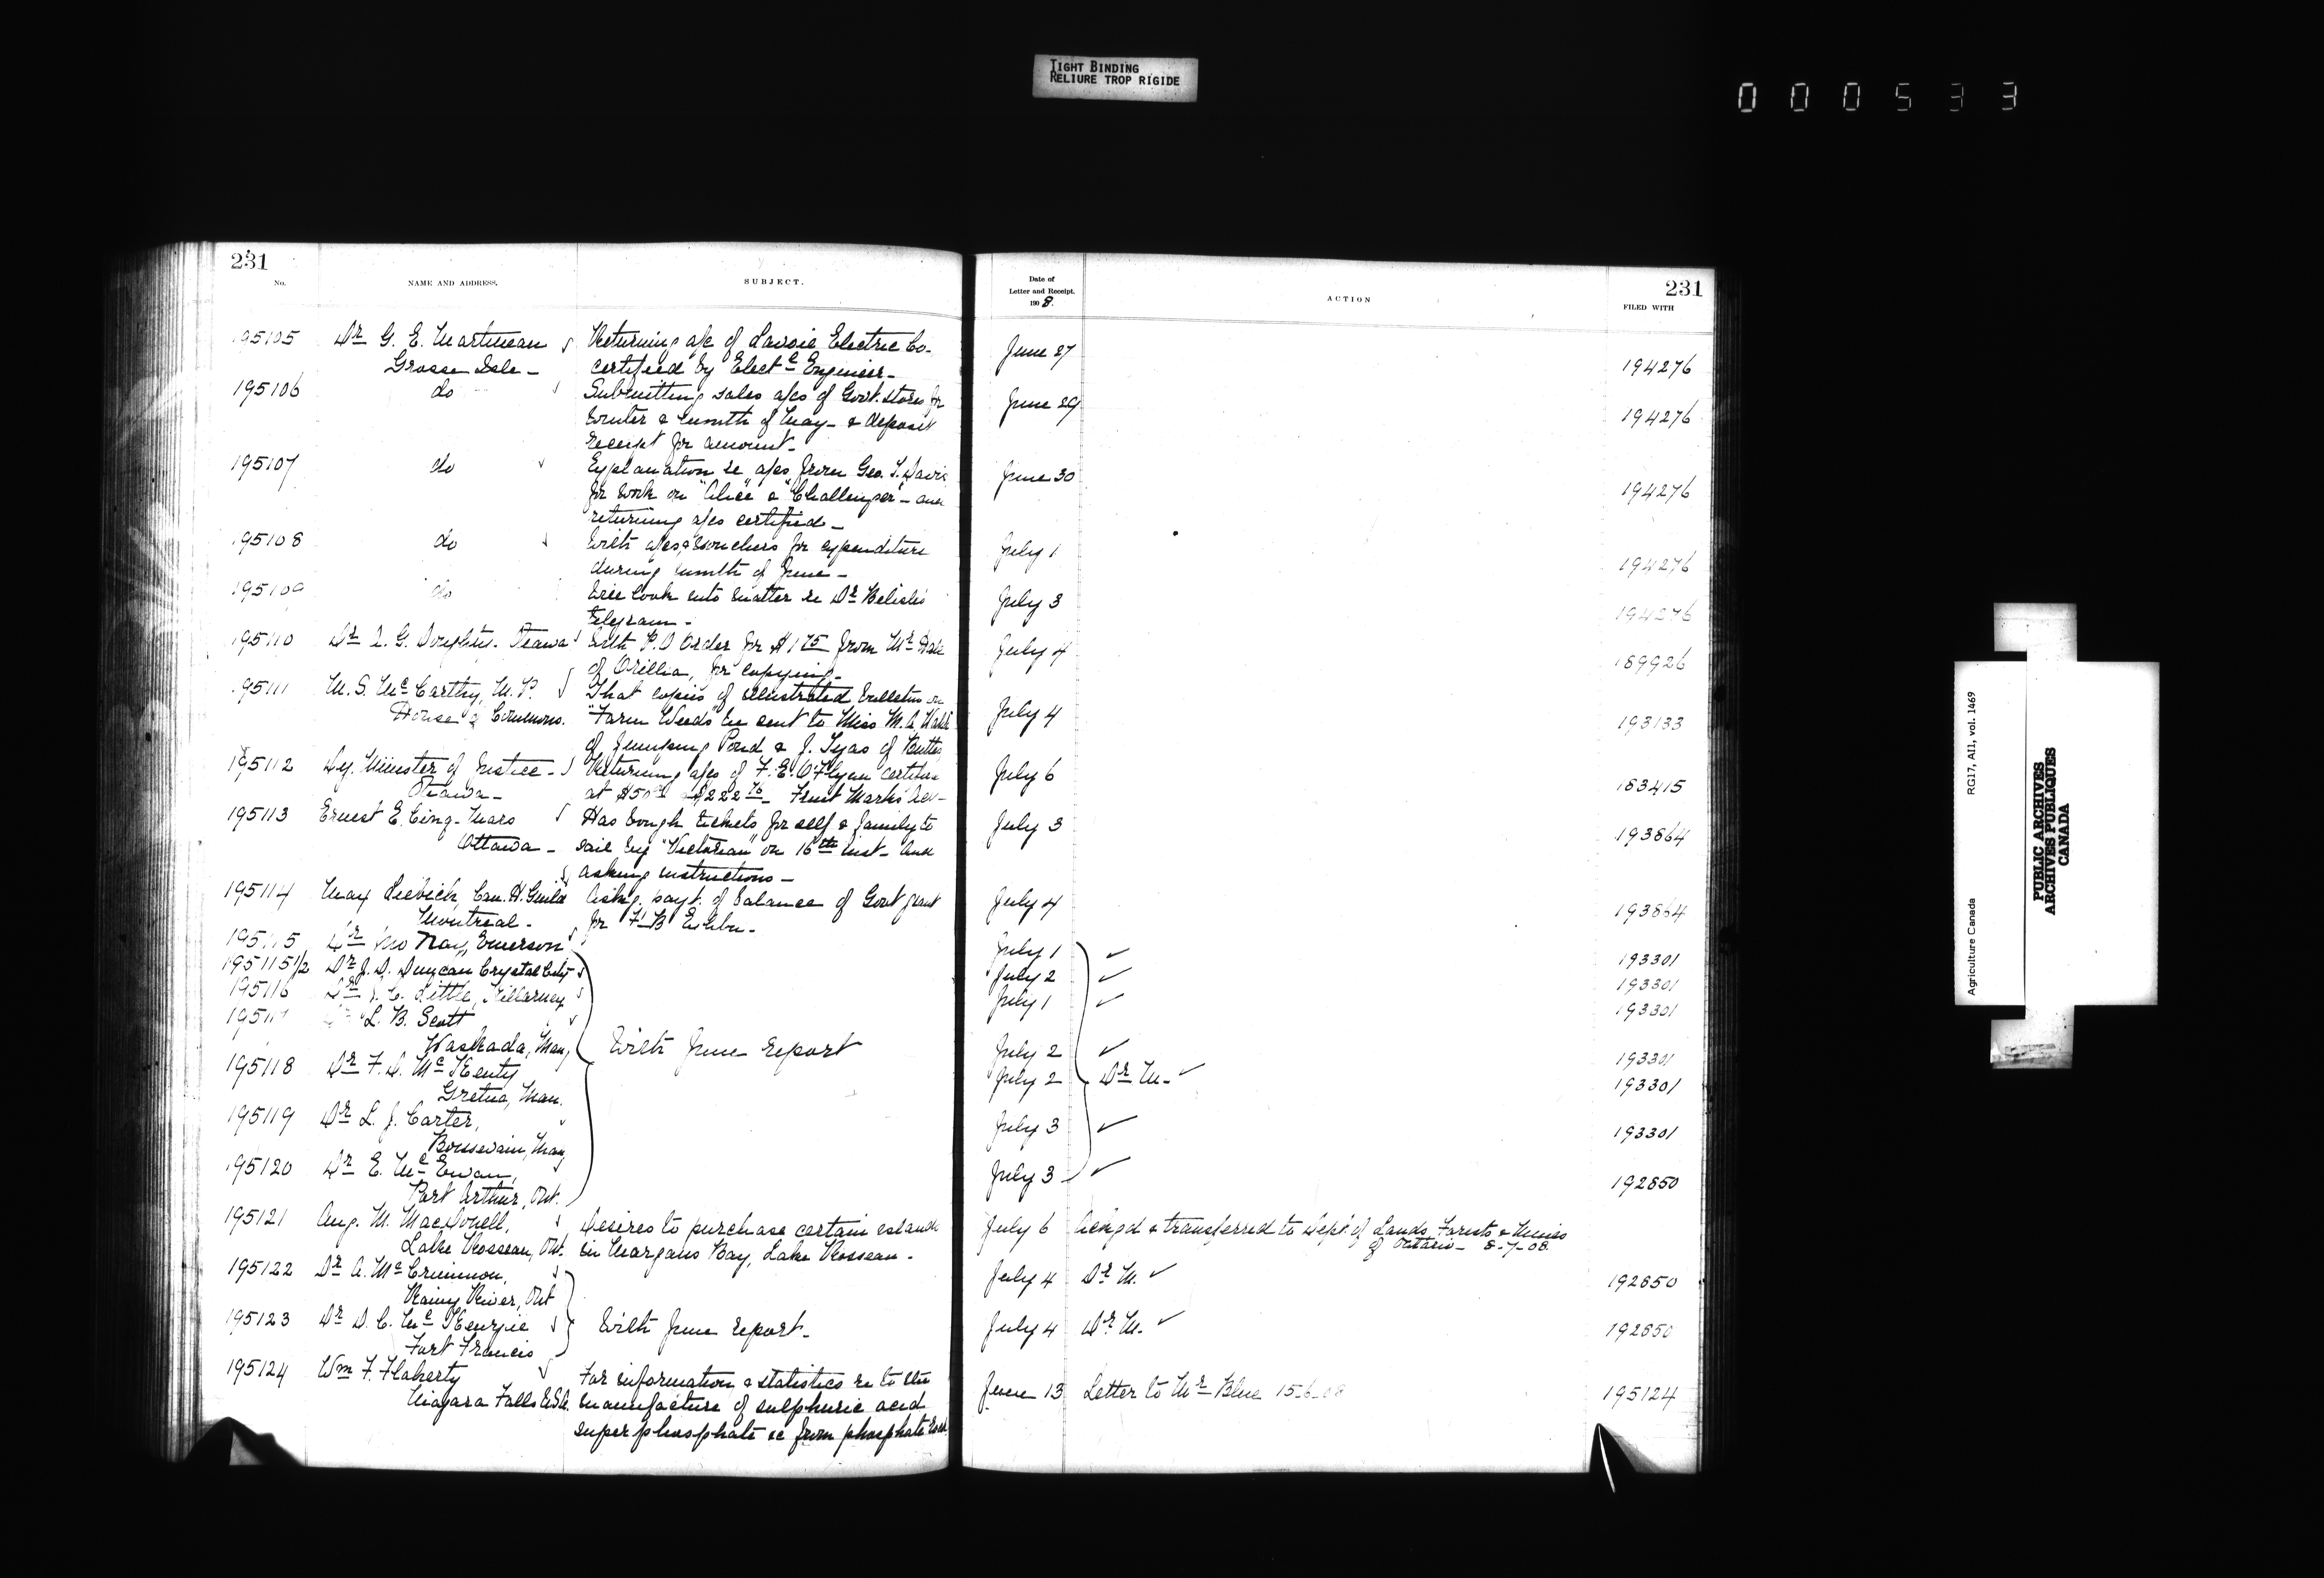 TIGHT BINDING
RELIURE TROP RIGIDE
000533
231
No.
NAME AND ADDRESS.
SUBJECT.
195105 Dr G. E. Martineau Returning a/c of Lavoie Electric Co.
Grosse Isle - certified by Elect c Engineer -
195106 do Submitting sales a/cs of Govt. stores for
winter & month of May - & deposit
receipt for amount -
195107 do Explanation re a/cs from Geo. T. Davie
for work on "Alice" & "Challenger" - and
returning a/cs certified -
195108 do With a/cs & vouchers for expenditure
during month of June -
195109 do Will look into matter re Dr
telegram -
195110 Dr A. G. Doughty. Ottawa With P.O Order for $1 75 from Mr
of Orillia, for copying -
195111 M. S. McCarthy, M.P. That copies of illustrated bulletin on
House of Commons. "Farm Weeds" be sent to Miss M. A.
of Jumping Pond & J. Tyas of
195112 Dy. Minister of Justice - Returning a/cs of F. E. O'Flynn certified
Ottawa - at $50 & $222 76 - Fruit Marks Act -
195113 Ernest E. Cinq-Mars Has bough tickets for self & family to
Ottawa - sail by "Victorian" on 16th inst - and
asking instructions -
195114 May Asking payt. of balance of Govt grant
Montreal - for F. B Exhbn -
195115 Dr Emerson
195115 1/2 Dr J. D. Duncan Crystal City
195116 Dr Little, Killarney
19511 L. B. Scott
Waskada, Man, With June report
195118 Dr F. D. McKenty
Gretna, Man.
195119 Dr L. J. Carter,
Boissevain, Man
195120 Dr E. McEwan,
Port Arthur, Ont.
195121 Aug. M. MacDonell, Desires to purchase certain islands
Lake Rosseau, Ont. in Morgans Bay, Lake Rosseau -
195122 Dr A. McCrimmon,
Rainy River, Ont
195123 Dr D. C. McKenzie With June report -
Fort Francis
195124 Wm F. Flaherty For information & statistics re to the
Niagara Falls U.S.A. manufacture of sulphuric acid
superphosphate &c from phosphate rock
Date of
Letter and Receipt.
190 8.
ACTION
231
FILED WITH
June 27 194276
June 29 194276
June 30 194276
July 1 194276
July 3 194276
July 4 189926
July 4 193133
July 6 183415
July 3 193864
July 4 193864
July 1 ✓ 193301
July 2 ✓ 193301
July 1 ✓ 193301
July 2 ✓ 193301
July 2 Dr M. ✓ 193301
July 3 ✓ 193301
July 3 ✓ 192850
July 6 Ackgd & transferred to Dept. of Lands Forests & Mines
of Ontario - 8-7-08.
July 4 Dr M. ✓ 192850
July 4 Dr M. ✓ 192850
June 13 Letter to Mr Blue 15-6-08 195124
Agriculture Canada RG17, AII, vol. 1469
PUBLIC ARCHIVES
ARCHIVES PUBLIQUES
CANADA